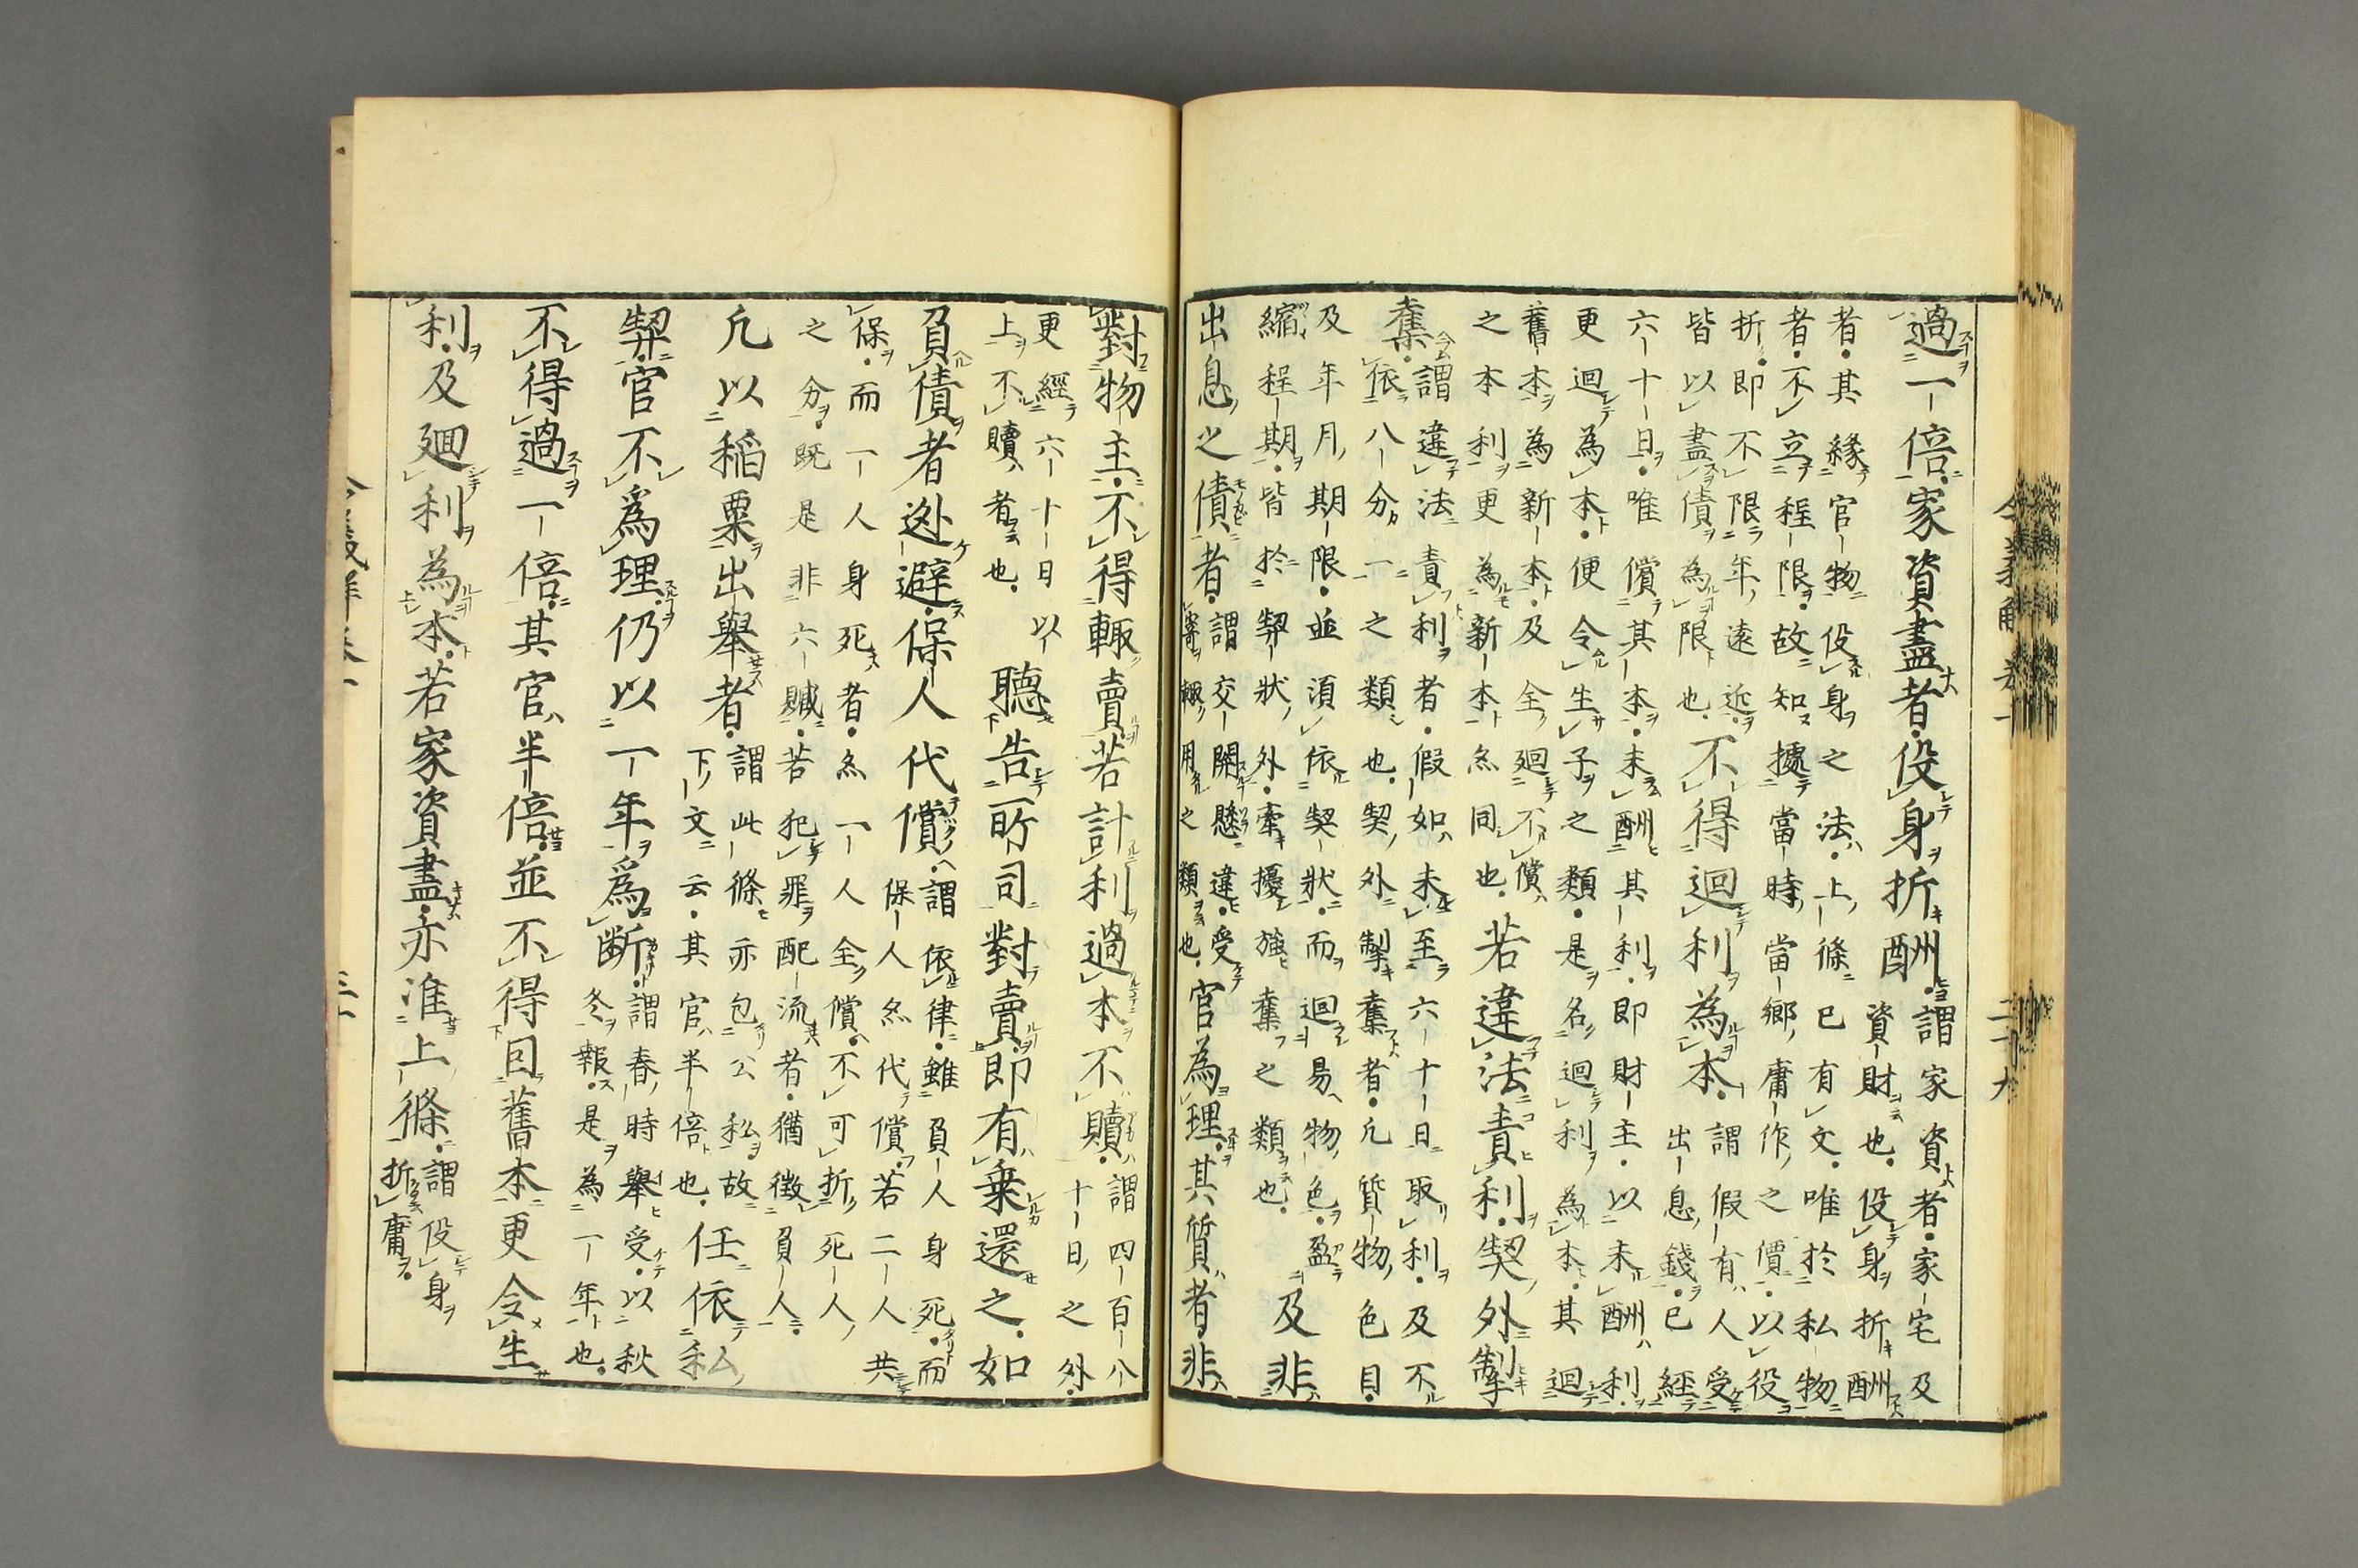 過一倍家資盡者役身折酬
謂家資者家宅及
資財也役身折酬
者其緣官物役身之法上條已有文唯於私物
者不立程限故知據當時當鄉庸作之價以役
折即不限年遠近
皆以盡債為限也
不得迴利為本
謂假有人受
出息錢已經
六十日唯償其本未酬其利即財主以未酬利
更迴為本便令生子之類是名迴利為本其迴
舊本為新本及全廻不償
之本利更為新本亦同也
若違法責利契外掣
奪
謂違法責利者假如未至六十日取利及不
依八分一之類也契外掣奪者凢質物色目
及年月期限並須依契狀而迴易物色盈
縮程期皆於契狀外牽擾強奪之類也
及非
出息之債者
謂交關懸違受
寄輙用之類也
官為理其質者非
對物主不得輙賣若計利過本不贖
謂四百八
十日之外
更經六十日以
上不贖者也
聽告所司對賣即有乗還之如
負債者逃避保人代償
謂依律雖負人身死而
保人亦代償若二人共
保而一人身死者亦一人全償不可折死人
之分既是非六贓若犯罪配流者猶徴負人
凢以稲粟出舉者
謂此條亦包公私故
下文云其官半倍也
任依私
契官不爲理仍以一年爲断
謂春時舉受以秋
冬報是為一年也
不得過一倍其官半倍並不得回舊本更令生
利及廻利為本若家資盡亦准上條
謂役身
折庸